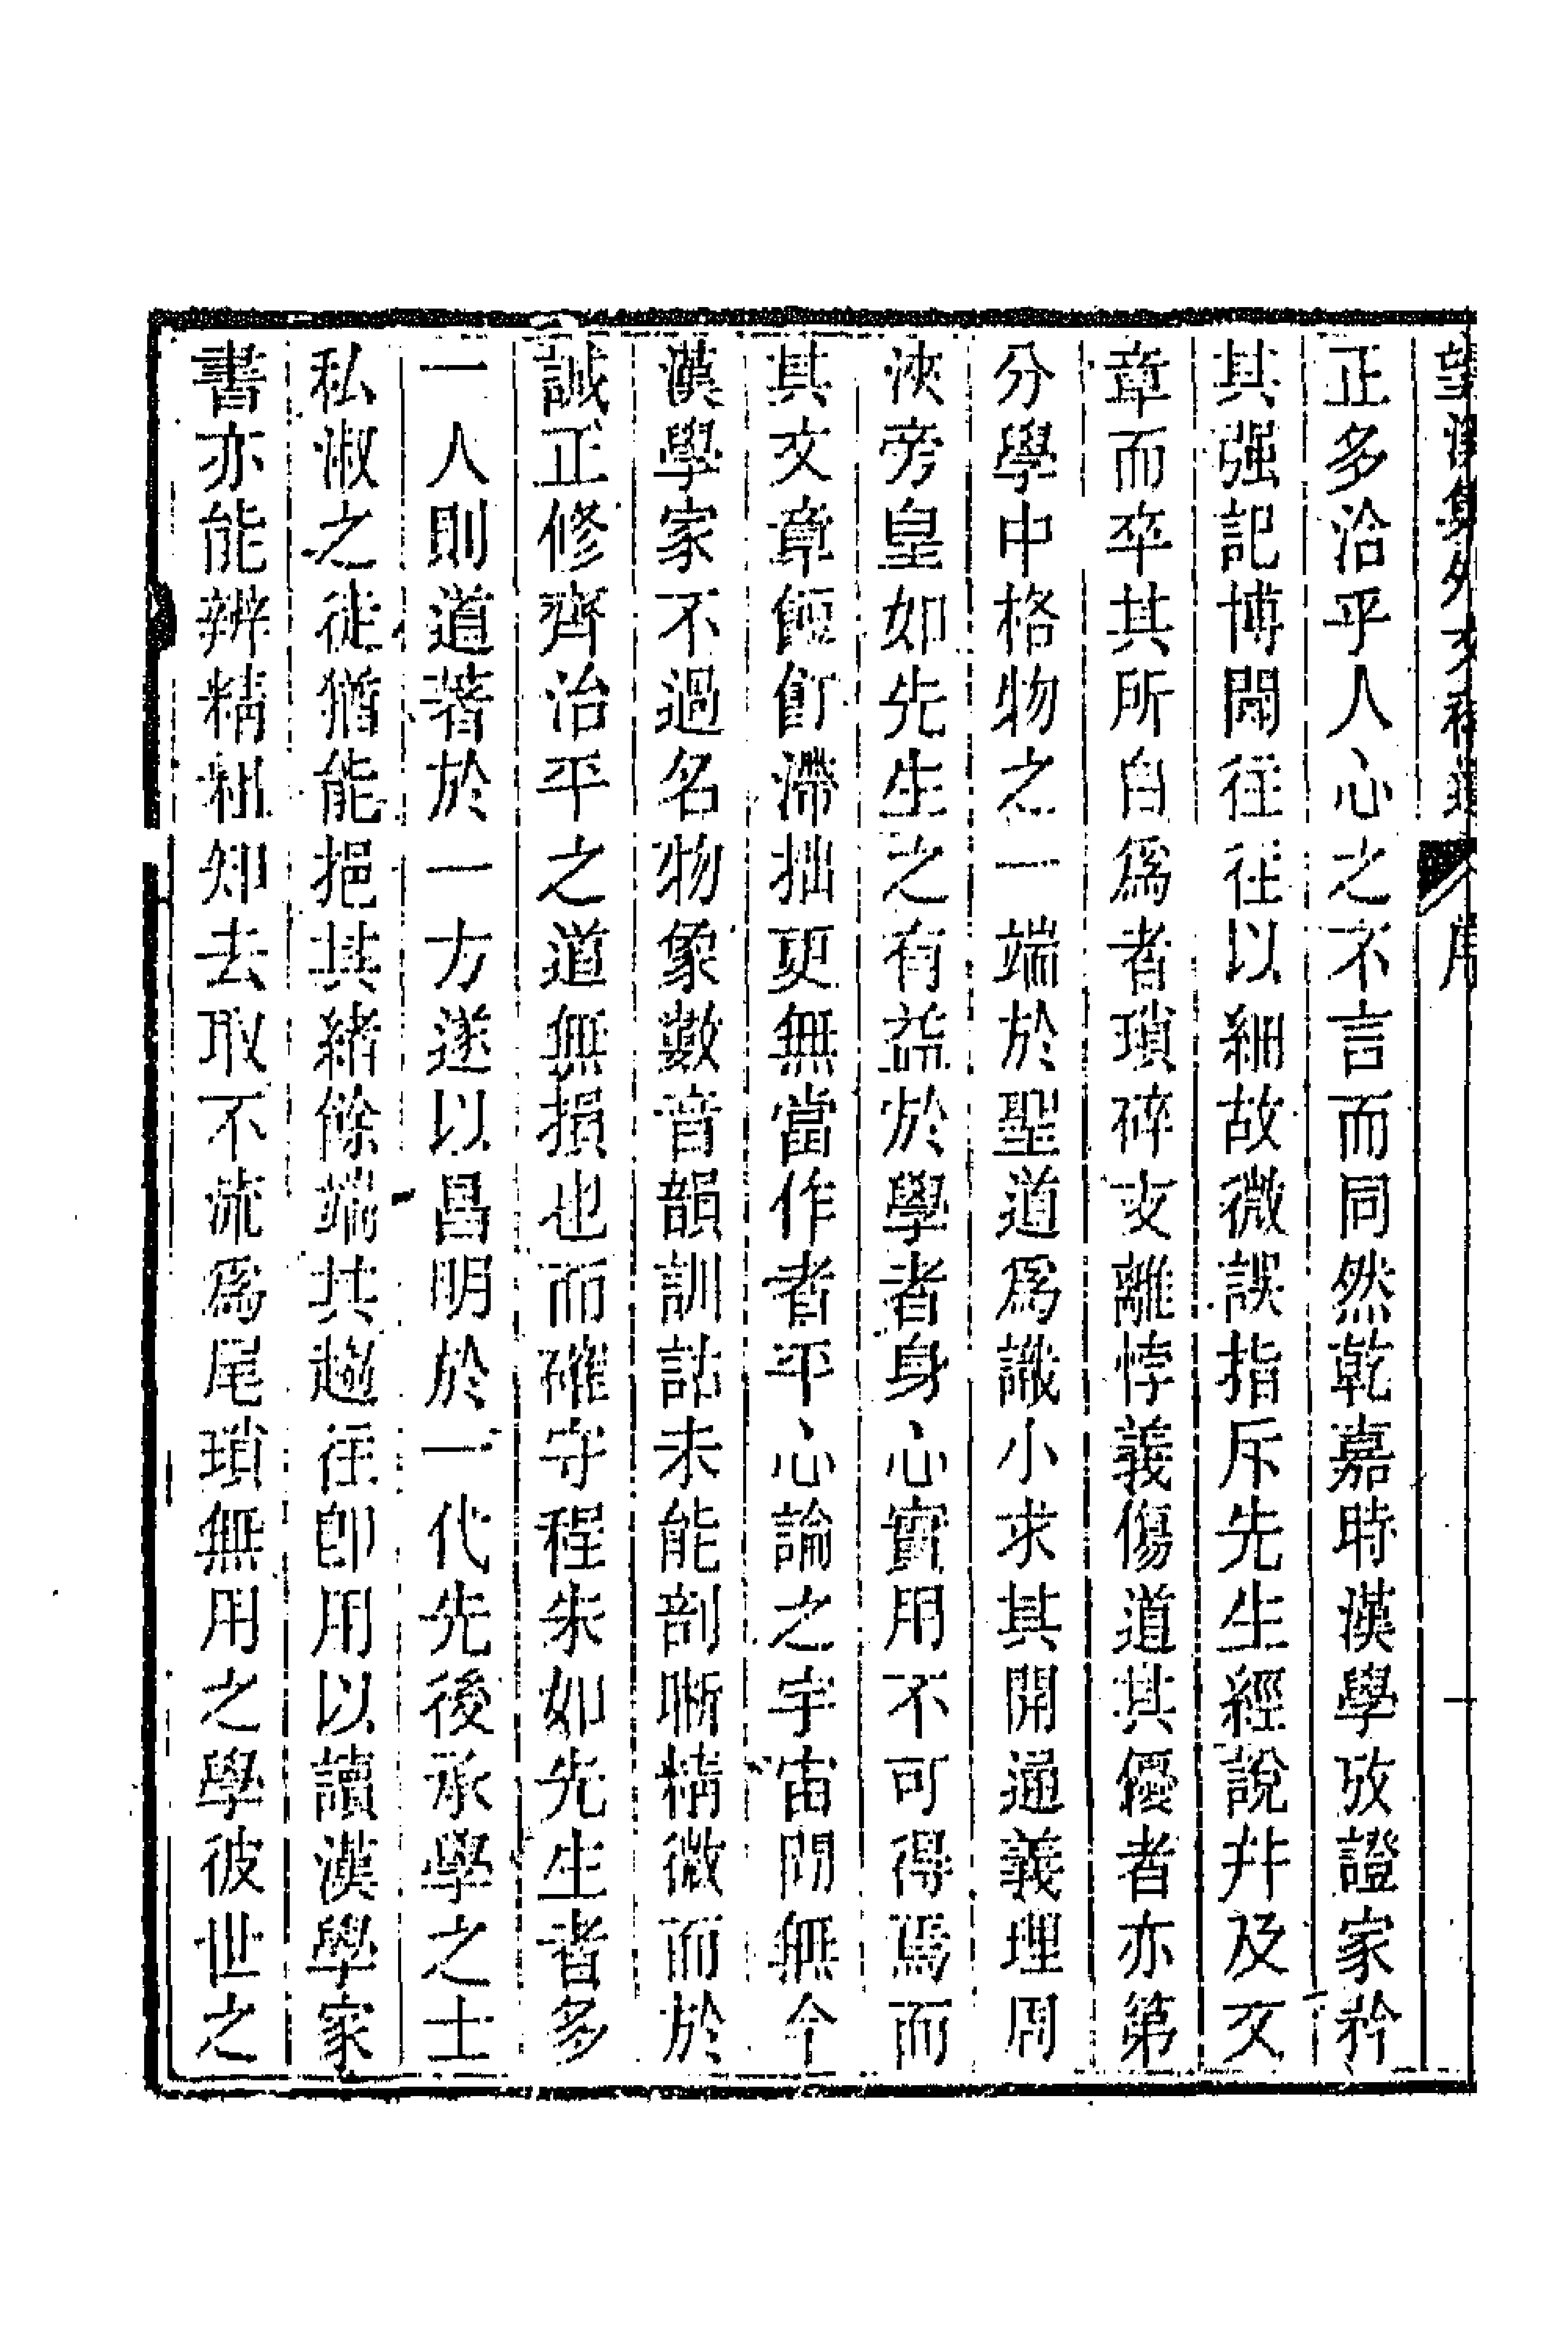 望溪集外文補遺 序
正多洽乎人心之不言而同然乾嘉時漢學攷證家矜
其强記博聞往往以細故微誤指斥先生經說幷及文
章而卒其所自爲者瑣碎支離悖義傷道其優者亦第
分學中格物之一端於聖道爲識小求其開通義理周
浹旁皇如先生之有益於學者身心實用不可得焉而
其文章餖飣滯拙更無當作者平心論之宇宙閒無今
漢學家不過名物象數音韻訓詁未能剖晰精微而於
誠正修齊治平之道無損也而確守程朱如先生者多
一人則道著於一方遂以昌明於一代先後承學之士
私淑之徒猶能挹其緖餘端其趨往卽用以讀漢學家
書亦能辨精粗知去取不流爲尾瑣無用之學彼世之